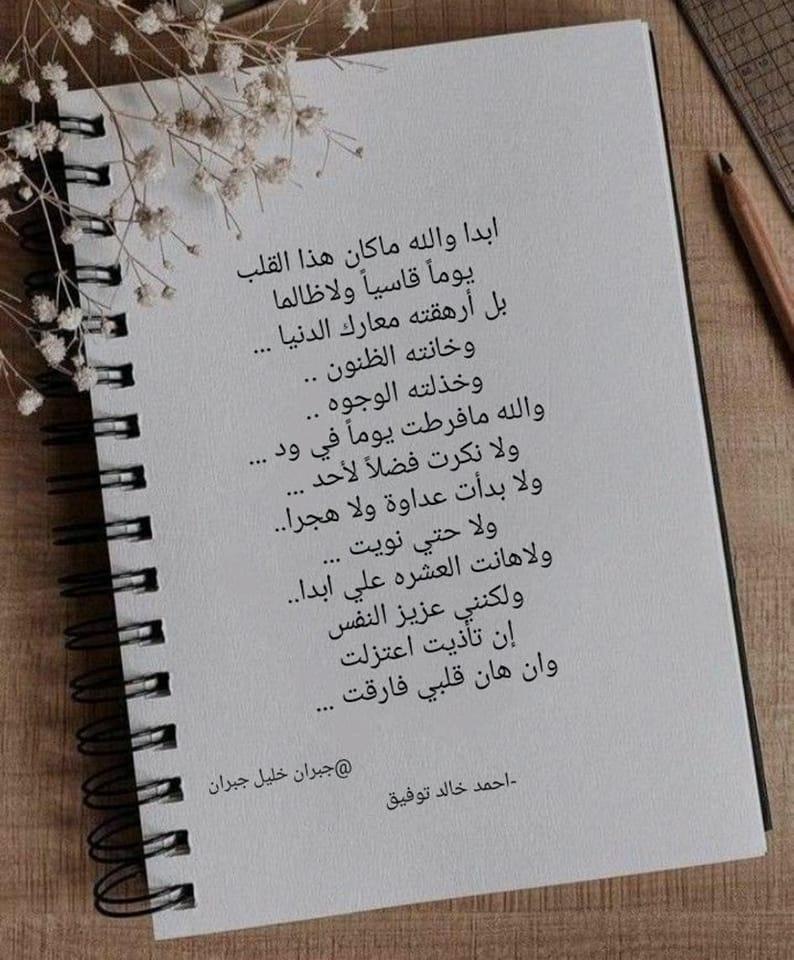 ابدا والله ماكان هذا القلب
يوماً قاسياً ولاظالما
بل أرهقته معارك الدنيا ...
وخانته الظنون ..
وخذلته الوجوه ..
والله مافرطت يوماً في ود ...
ولا نكرت فضلاً لأحد ...
ولا بدأت عداوة ولا هجرا..
ولا حتي نويت ...
ولاهانت العشره علي ابدا..
ولكنني عزيز النفس
إن تأذيت اعتزلت
وان هان قلبي فارقت ...
@جبران خليل جبران
-احمد خالد توفيق